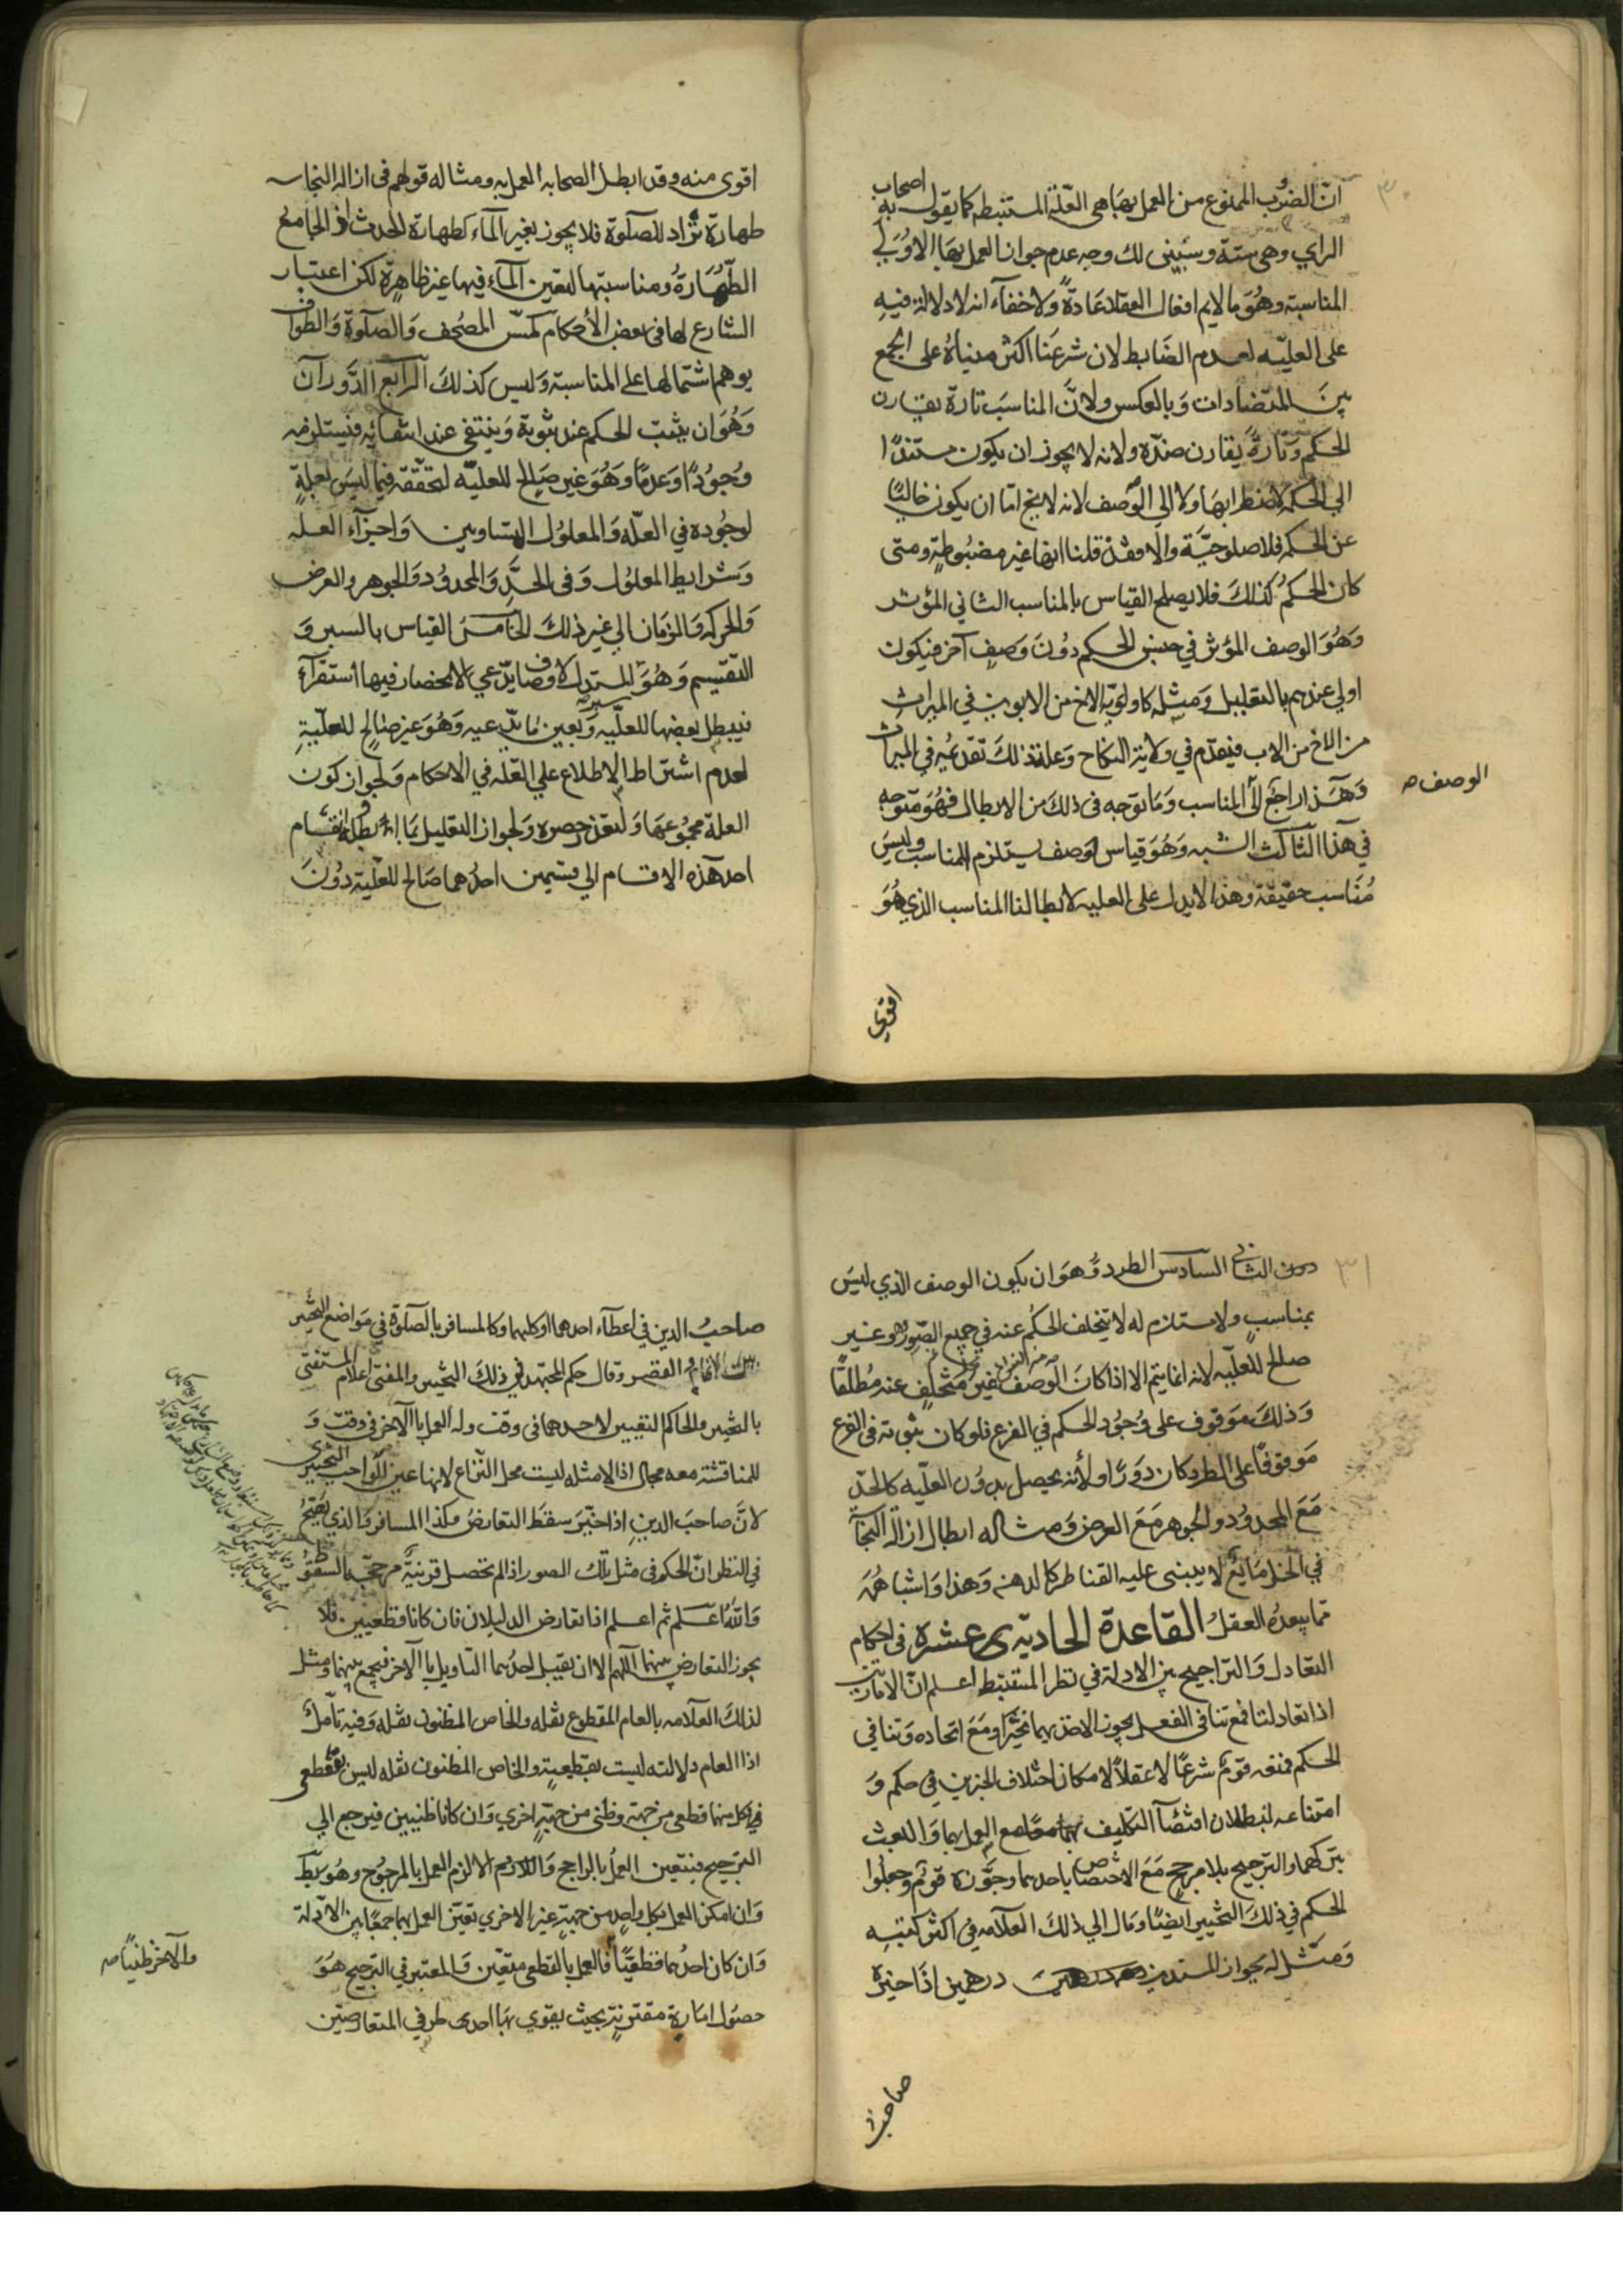 ٣٠
انّ الضرب الممنوع من العمل بها هى العلّة المستنبطه كما يقول به اصحاب
الراي وهى ستة وسنبيّن لك وجه عدم جواز العمل بها الاوّل
المناسبة وهُوَ ما لايم افعال العقلا عَادةً ولا خفآء انه لا دلالة فيهِ
على العليّه لعدم الضَابط لان شرعَنا اكثر مبناهُ على الجمع
بينَ المتضادات وَبالعكس ولانَّ المناسَب تارة يقارن
الحكم وَتارةً يقارن ضدّه ولانه لا يجوز ان يكون مستندًا
الى الحكمة لاضطرابهَا ولا الي الوَصف لانه لا يخ امّا ان يكون خاليًا
عن الحكمة فلا صلوحيَّة والا فقد قلنا انها غير مضبُوطةٍ ومتى
كان الحكمُ كذلكَ فلا يصلح القياس بالمناسب الثاني المؤثر
وَهُوَ الوصف المؤثر في جنس الحكم دُونَ وَصفٍ آخر فيكون
اولي عندهم بالتعليل وَمثله كاولويّة الاخ من الابوين في الميراث
من الاخ من الاب فيقدّم في ولاية النكاح وَعلة ذلكَ تقدّمُه في الميراث
وَهَذا راجع الى المناسب وَمَا توجه فى ذلكَ من الابطال فهُوَ متوجه
الوصف صه
في هذا الثالث الشبه وَهُوَ قياس لوصف يستلزم المناسب وليسَ
مُنَاسب حقيقة وهذا لا يدل على العليه لابطالنا المناسب الذي هُوَ
اقوي
اقوى منه وقد ابطل الصحابه العمل به ومثاله قولهم فى ازالة النجاسه
طهارة تُراد للصلوة فلا يجوز بغير المآء كطهارة الحدث اذ الجامع
الطّهَارةُ ومناسبتها لتعين المآء فيها غير ظاهرة لكن اعتبار
الشارع لها فى بعض الأحكام كمَسّ المصُحف وَالصلوة وَالطواف
يوهم اشتمالها على المناسبة وَليس كذلكَ الرابع الدَّوران
وَهُوَ ان يثبت الحكم عند ثبوته وَينتفى عند انتفائه فيستلزمه
وجُودًا وَعدمًا وَهُوَ غير صَالح للعليّه لتحققه فيما ليسَ لعلةٍ
لوجُوده في العلّه وَالمعلوُل المتساويين وَاجزآء العلـه
وَشرايط المعلوُل وَفى الحدِّ وَالمحدوُد وَالجوهر والعرض
وَالحركه وَالزمان الي غير ذلكَ الخامس القياس بالسبر وَ
التقسيم وَهُوَ للمستدل لاوصاف يدّعي الانحصار فيها استقرآء
فيبطل بعضها للعليّه وَيعين ما يدّعيه وَهُوَ غير صَالح للعلّيةِ
لعدم اشتراط الاطلاع علي العلّه في الاحكام وَلجواز كون
العلة مجمُوعهَا وَلتعذر حصره وَلجواز التعليل بما ابطله وانقسام
احد هَذه الاقسام الي قسمين احدُهما صَالح للعلّية دوُنَ
٣١
دون الثانى السادس الطرد وَهوَ ان يكون الوصف الذي ليسَ
بمناسبٍ ولا مستلزم له لا يتخلف الحكُم عنه في جميع الصّور وهو غير
صالح للعلّيه لانه انما يتم الا اذا كانَ الوَصف غير مُتخلفٍ عنه مُطلقًا
وَذلكَ مَوقوف على وُجُود الحكم في الفرع فلو كان ثبوته فى الفرع
مَوقوفًا على الطرد كان دَورًا ولأنه يحصل بدوُن العلّيه كالحدّ
مَعَ المحدوُد والجوهر مَعَ العرض وَمثاله ابطال ازالة النجاسه
في الخل مَايع لا يبنى عليه القناطر كالدهن وَهذا وَاشباههُ
ممّا يبعدُه العقلُ القاعدة الحاديه عشره فى احكام
التعادل وَالتراجيح بين الادلة في نظر المستنبط اعلم انّ الامارتين
اذا تعادلتا فمع تنافى الفعل يجوز الاخذ بهما مُخيَّرًا ومَعَ اتحاده وَتنافي
الحكم فمنعه قوَمٌ شرعًا لا عقلاً لامكان اختلاف الخبرين في حكم وَ
امتناعه لبطلان اقتضآء التكليف بهما مع العمل بهما وَالعبث
بتركهما والترجيح بلا مرجح مَعَ الاختصاص باحدهما وجوَّزه قومٌ وَجعلوا
الحكم في ذلكَ التخيير ايضًا وَمال الي ذلكَ العلّامه في اكثر كتبـه
وَمثّل له بجواز للمستدين درهمين اذا خيّره
صاحبُ
صاحبُ الدين في اعطآء احدهما او كليهما وكالمسافر بالصلوة في مَواضع التخيير
بين الاتمام والقصر وقال حكم المجتهد في ذلكَ التخيير والمفتى اعلام المستفتى
بالتخيير والحاكم التعيين لاحدهما فى وقت وله العمل بالآخر فى وقت وَ
للمناقشة معه مجال اذ الامثله ليست محل النّزاع لانها عين الواجب التخييرى
لانّ صاحبَ الدينِ اذا خيّر سقط التعارضُ وكذا المسافر وَالذي يفتح
في النظر انّ الحكم فى مثل تلك الصور اذا لم تحصل قرينةً مرجحةً السقوُط
وَاللهُ اعَلم ثم اعلم اذا تعارض الدليلان فان كانا قطعيين فلا
يجوز التعارض بينهما اللهم الا ان يقبل احدُهما التاويل بالآخر فيجمع بينهما ومثل
لذلكَ العلّامه بالعام المقطوع بنقله والخاص المظنون بنقله وَفيه تأمل
اذ العام دلالته ليست بقطيعيةٍ والخاص المظنون نقله ليس بقطعى
في كل منهما قطعى من جهة وظنى من جهةٍ اخري وَان كانا ظنيين فيرجع الي
الترجيح فيتعين العمل بالراجح وَاللازم الالزم العمل بالمرجوُح وهُو بَط
وَان امكن العمل بكل واحدٍ من جهةٍ غير الاخري تعيّن العمل بهما جمعًا بين الادّلة
والآخر ظنيًا صه
وَان كان احدُهما قطعيًّا فالعمل بالقطعى متعيّن وَالمعتبر في الترجيح هُوَ
حصُول امارةٍ مقترنةٍ بحيث يقوي بهَا احدى طرفي المتعارضتين